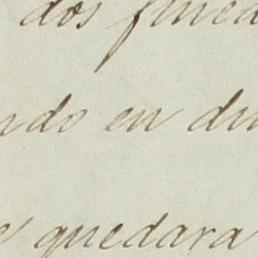 dos fined
ndo en du
quedara